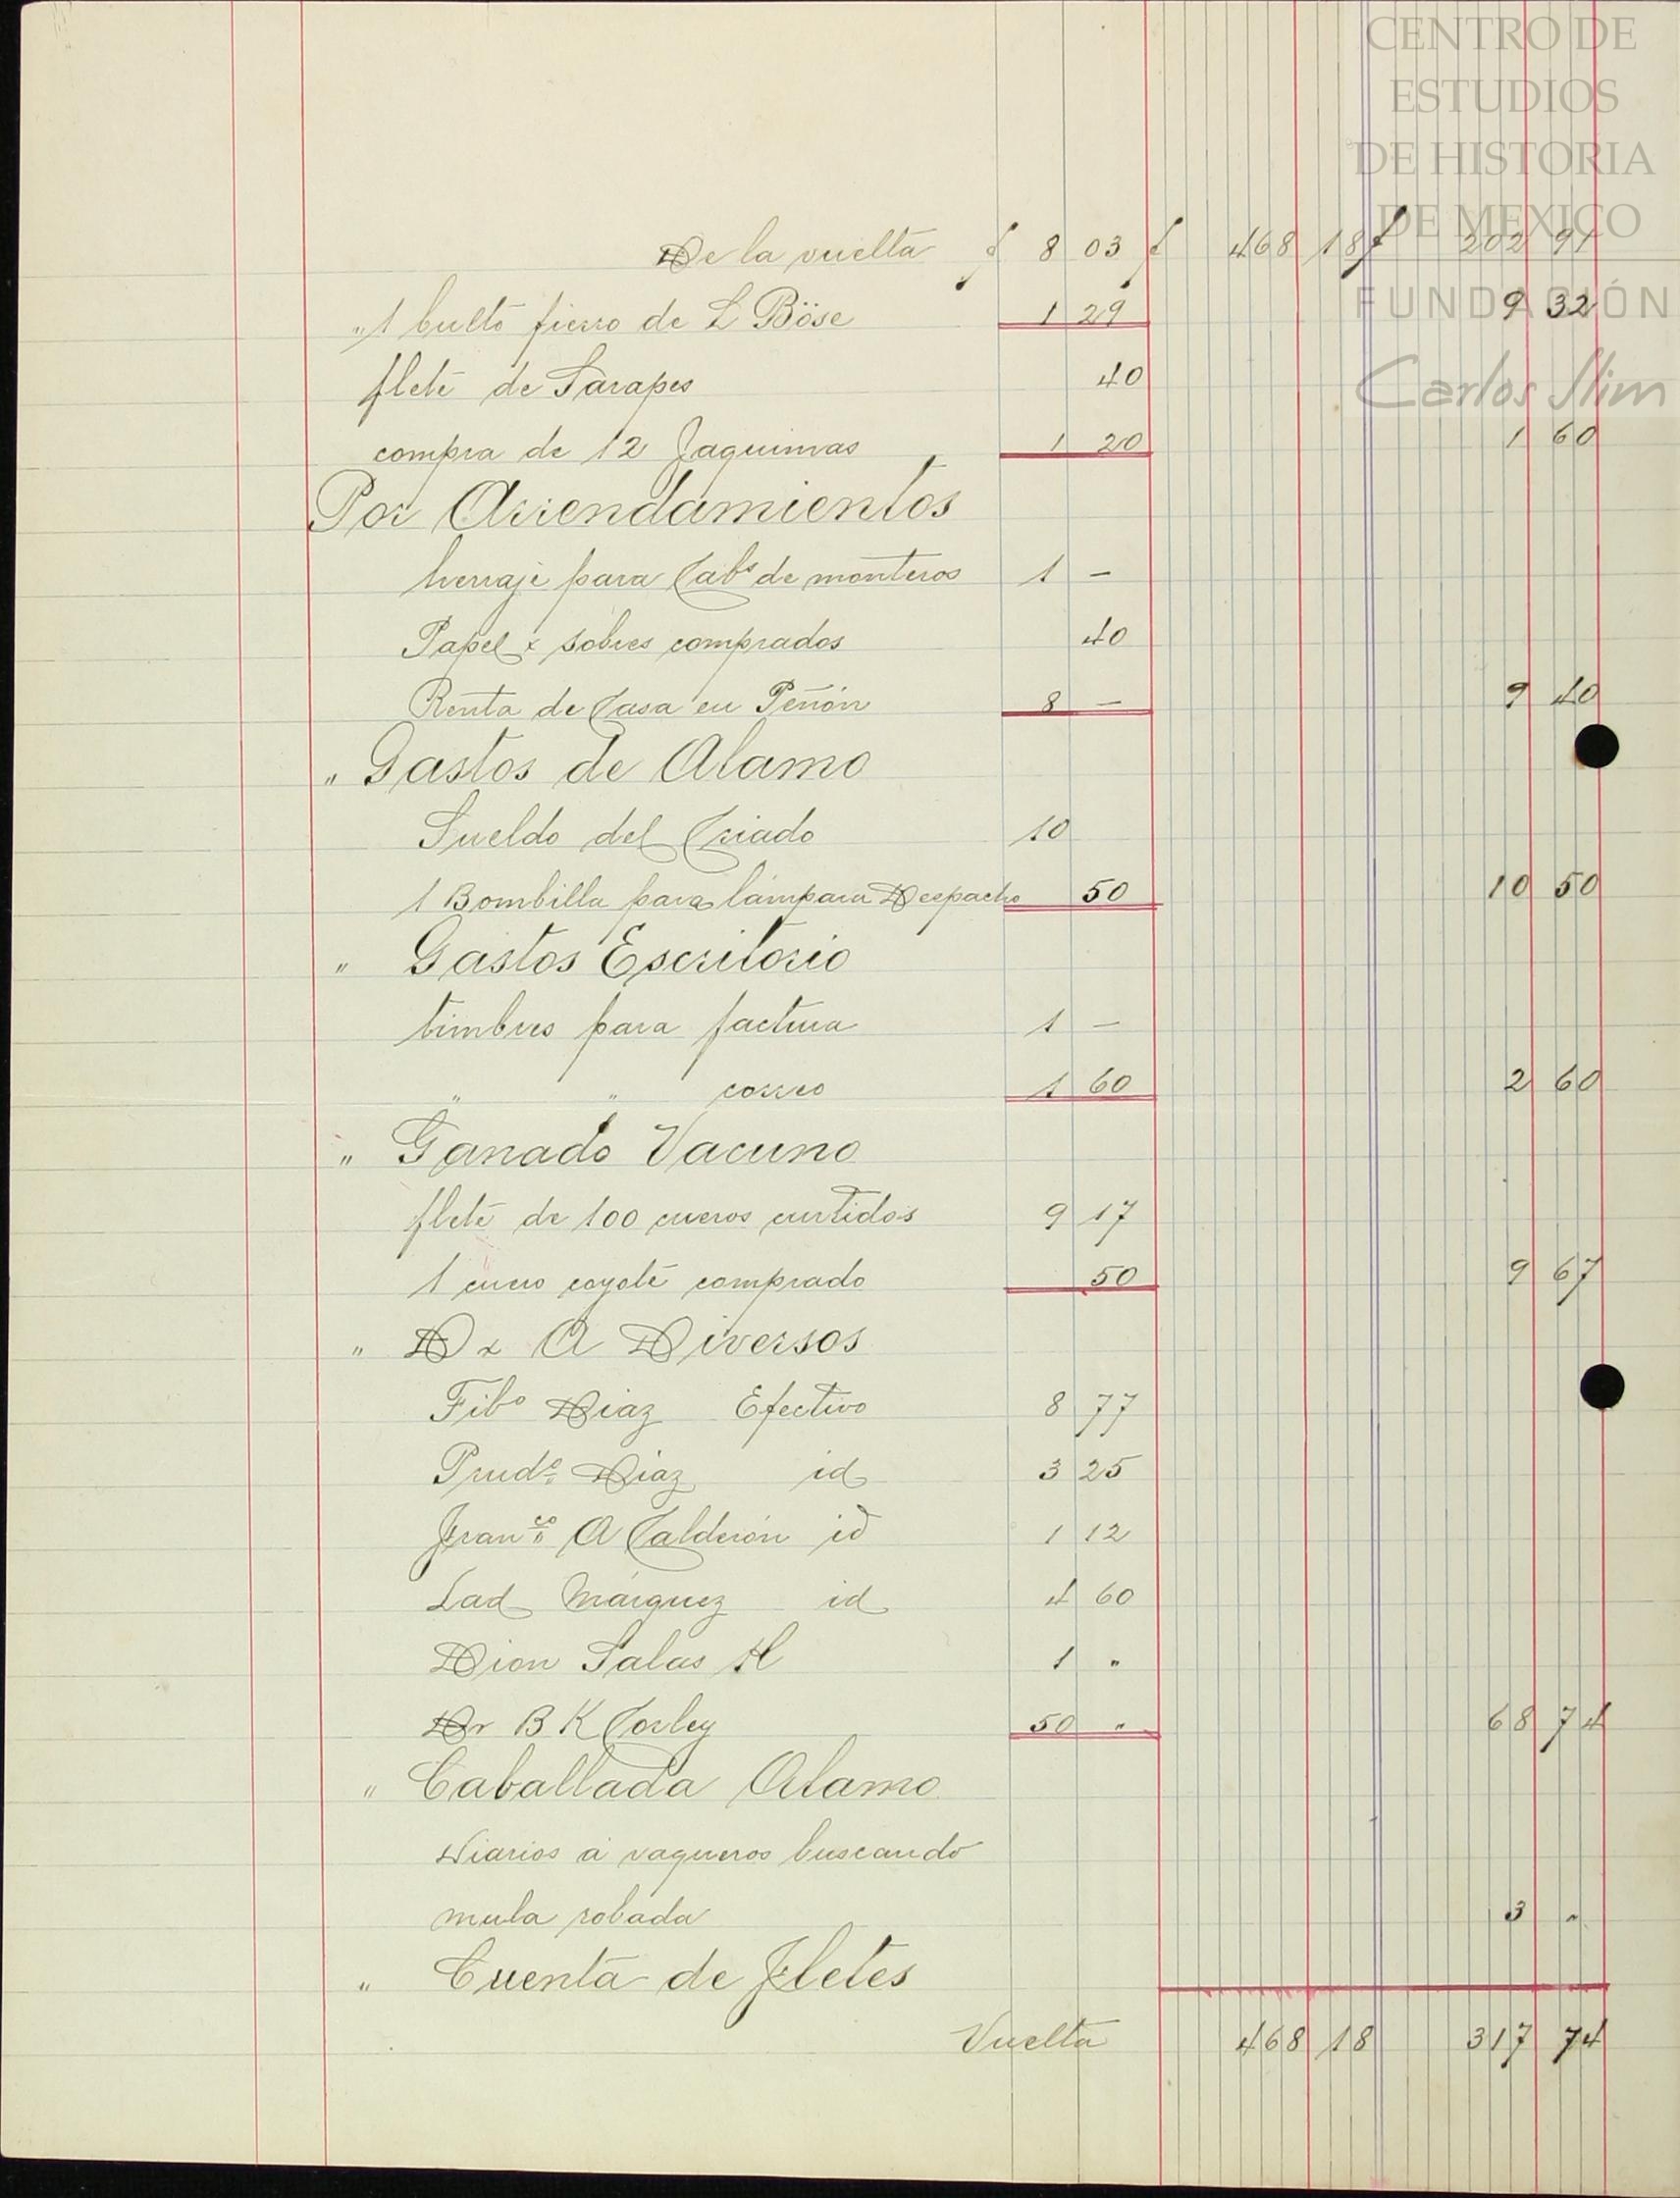 CENTRO DE
ESTUDIOS
DE HISTORIA
DE MEXICO
FUNDACIÓN
Carlos Slim
De la vuelta $ 8 03 $ 468 18 $ 202 91
" 1 bulto fierro de L Böse 1 29 9 32
flete de Sarapes 40
compra de 12 Jaquimas 1 20 1 60
Por Arrendamientos
herraje para Cabs de monteros 1 –
Papel x sobres comprados 40
Renta de Casa en Peñón 8 – 9 40
" Gastos de Alamo
Sueldo del Criado 10
1 Bombilla para lámpara Despacho 50 10 50
" Gastos Escritorio
timbres para factura 1 –
" " correo 1 60 2 60
" Ganado Vacuno
flete de 100 cueros curtidos 9 17
1 cuero coyote comprado 50 9 67
" D x A Diversos
Fibo Diaz Efectivo 8 77
Prudo Diaz id 3 25
Franco A Calderón id 1 12
Lad Márquez id 4 60
Dion Salas H 1 "
Dr B K Corley 50 " 68 74
" Caballada Alamo
Diarios á vaqueros buscando
mula robada 3 "
" Cuenta de Fletes
Vuelta 468 18 317 74